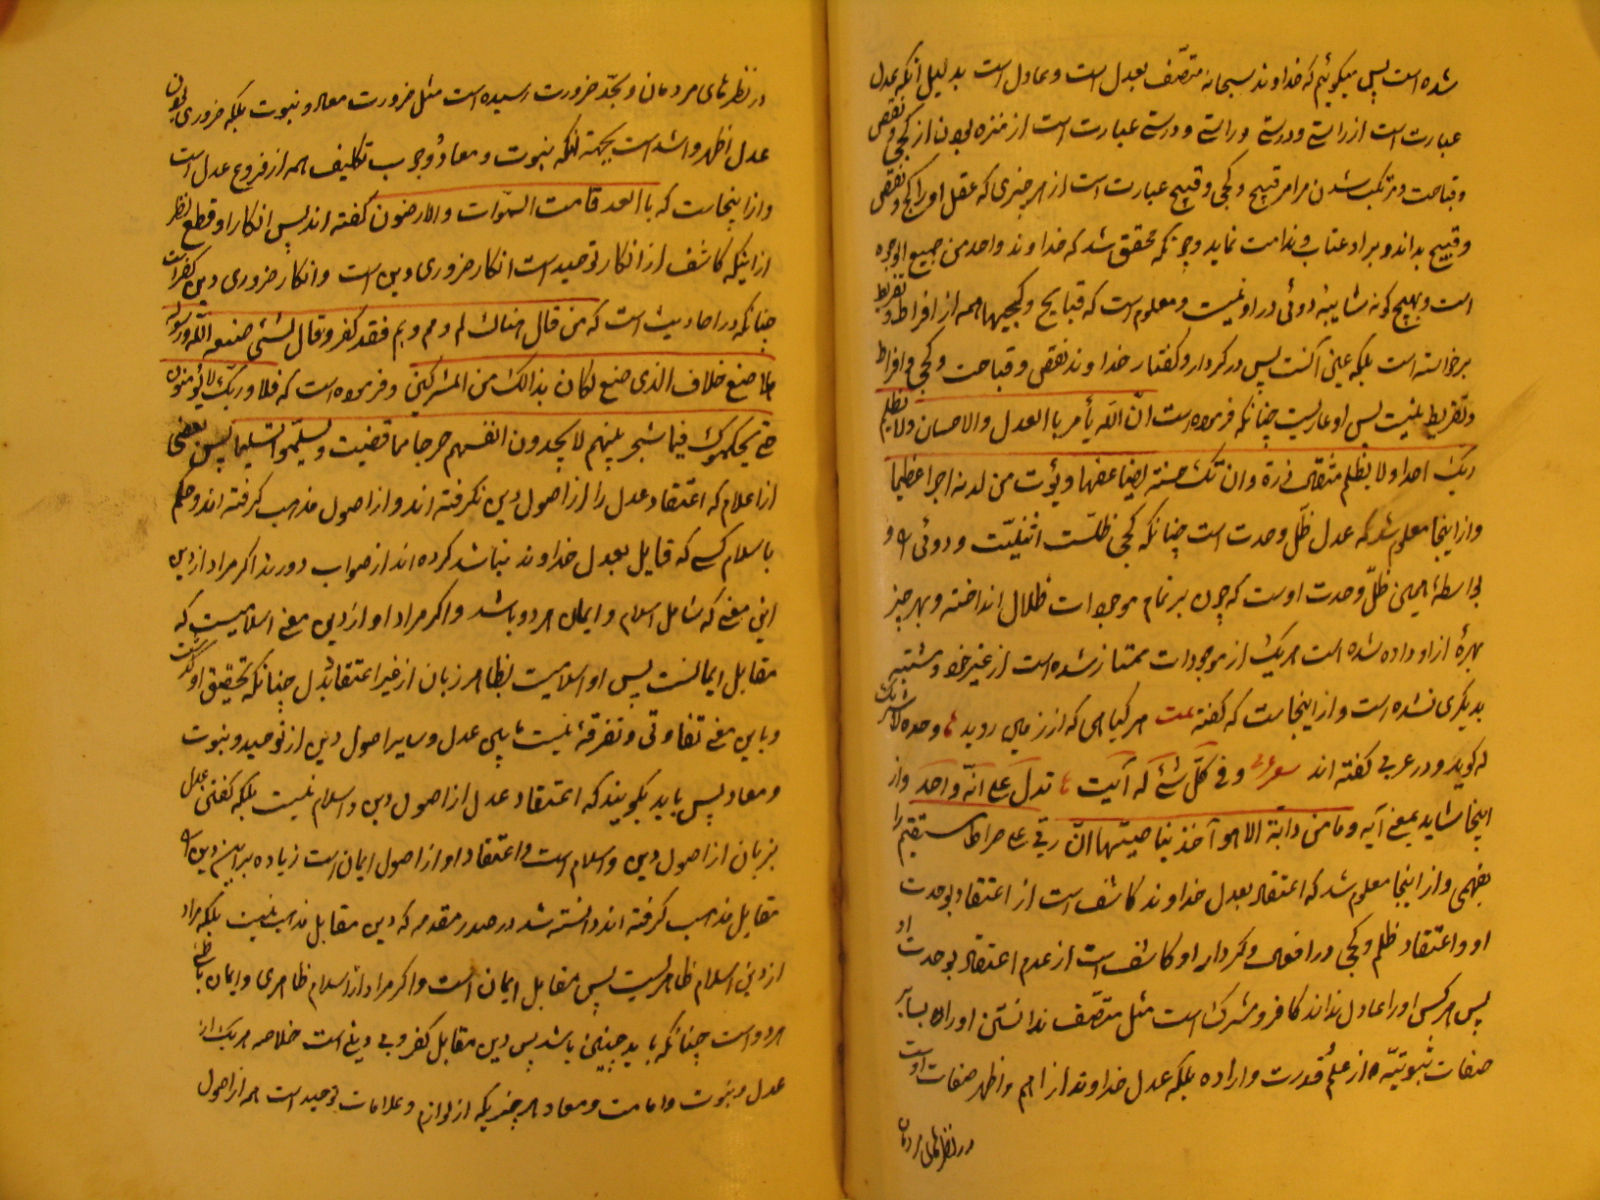 شده است پس میگوئیم که خداوند سبحانه متصّف بعدل است و عادل است بدلیل آنکه عدل
عبارت است از راستی و درستی و راستی و درستی عبارت است از منزه بودن از کجی و نقص
و قباحت و مرتکب شدن مر امر قبیح و کجی و قبیح عبارت است از هر چیزی که عقل او را کج و نقص
و قبیح بداند و بر او عتاب و ندامت نماید و چونکه محقق شد که خداوند واحد من جمیع الوجوه
است و بهیچ گونه شایبهٔ دوئی در او نیست و معلوم است که قبایح و کجیها همه از افراط و تفریط
برخواسته است بلکه عین آنست پس در کردار و گفتار خداوند نقص و قباحت و کجی و افراط
و تفریط نیست پس او عادلیست چنانکه فرموده است انّ اللّه یأمر باالعدل والاحسان ولا یظلم
ربک احدا ولا یظلم مثقال ذرة وان تک حسنة یضاعفها ویؤت من لدنه اجرا عظیما
و از اینجا معلوم شد که عدل ظلّ وحدت است چنانکه کجی ظلّ اثنینیّت و دوئی است و
بواسطهٔ همین ظلّ وحدت اوست که چون بر تمام موجودات ظلال انداخته و بهر چیز
بهرهٔ از او داده شده است هر یک از موجودات ممتاز شده است از غیر خود و مشتبه
بدیگری نشده است و از اینجاست که گفته بیت هر گیاهی که از زمین روید وحده لا شریک
له گوید و در عربی گفته اند شعر و فی کلّ شئ له آیت تدلّ علی انّه واحد و از
اینجا شاید بمعنی آیه وما من دابة الا هو آخذ بناصیتها انّ ربی علی صراط مستقیم را
بفهمی و از اینجا معلوم شد که اعتقاد بعدل خداوند کاشف است از اعتقاد بوحدت
او و اعتقاد ظلم و کجی در افعال و کردار او کاشف است از عدم اعتقاد بوحدت او
پس هر کس او را عادل نداند کافر و مشرک است مثل متصّف ندانستن او را به سایر
صفات ثبوتیّه از علم و قدرت و اراده بلکه عدل خداوند از اهم و اظهر صفات اوست
در نظرهای مردمان
در نظرهای مردمان و بحدّ ضرورت رسیده است مثل ضرورت معاد و نبوت بلکه ضروری بودن
عدل اظهر و اشد است بجهة آنکه نبوت و معاد و وجوب تکلیف همه از فروع عدل است
و از اینجاست که باالعدل قامت السموات والارضون گفته اند پس انکار او قطع نظر
از اینکه کاشف از انکار توحید است انکار ضروری دین است و انکار ضروری دین کفر است
چنانکه در احادیث است که من قال هناک لم و مم و بم فقد کفر وقال لشئ صنعه اللّه ورسوله
الا صنع خلاف الذی صنع لکان بذالک من المشرکین و فرموده است که فلا وربّک لا یؤمنون
حتی یحکموک فیما شجر بینهم لا یجدون انفسهم حرجا مما قضیت ویسلّموا تسلیما پس بعضی
از اعلام که اعتقاد عدل را از اصول دین نگرفته اند و از اصول مذهب گرفته اند و حکم
باسلام کسی که قایل بعدل خداوند نباشد کرده اند از صواب دورند اگر مراد از دین
این معنی که شامل اسلام و ایمان هر دو باشد و اگر مراد او از دین معنی اسلامیست که
مقابل ایمانست پس او اسلامیت بظاهر زبان از غیر اعتقاد بدل چنانکه تحقیق او گذشت
و باین معنی تفاوتی و تفرقهٔ نیست مابین عدل و سایر اصول دین از توحید و نبوت
و معاد پس باید بگویند که اعتقاد عدل از اصول دین و اسلام نیست بلکه گفتن عدل
بزبان از اصول دین و اسلام است و اعتقاد او از اصول ایمان است زیاده بر این دین
مقابل مذهب گرفته اند دانسته شد در صدر مقدمه که دین مقابل مذهب نیست بلکه مراد
از دین اسلام ظاهریست پس مقابل ایمان است و اگر مراد از اسلام ظاهری و ایمان باطنی
هر دو است چنانکه باید چنین باشد پس دین مقابل کفر و بی دینی است خلاصه هر یک از
عدل و نبوت و امامت و معاد هر چیزیکه از لوازم و علامات توحید است همه از اصول